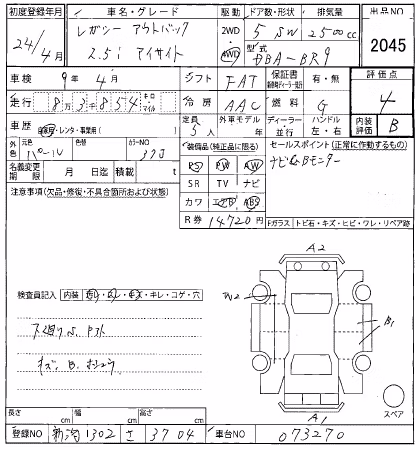 初度登録年月 車名・グレード 駆動 ドア数・形状 排気量 出品NO
24年 4月 レガシー アウトバック 2WD 5 SW 2500cc 2045
2.5i アイサイト 4WD 型式 DBA-BR9
車検 9年 4月 シフト FAT 保証書 有・無 評価点
走行 8万3千854 キロ・マイル 冷房 AAC 燃料 G 4
車歴 自家用・レンタ・事業用( ) 定員 5人 外車モデル 年 ディーラー・並行 ハンドル 左・右 内装評価 B
外色 元色 パール 色替 カラーNO 37J 装備品(純正品に限る) セールスポイント(正常に作動するもの)
名義変更期限 月 日迄 積載 t PS PW AW ナビ Bモニター
注意事項(欠品・修復・不具合箇所および状態) SR TV ナビ
カワ エアB ABS
R券 14720円 Fガラス トビ石・キズ・ヒビ・ワレ・リペア跡
A2
検査員記入 内装 キレ・コゲ・穴
B1
下廻りS.
キズ. B.
A1
スペア
長さ cm 幅 cm 高さ cm
登録NO 新潟 1302 さ 3704 車台NO 073270